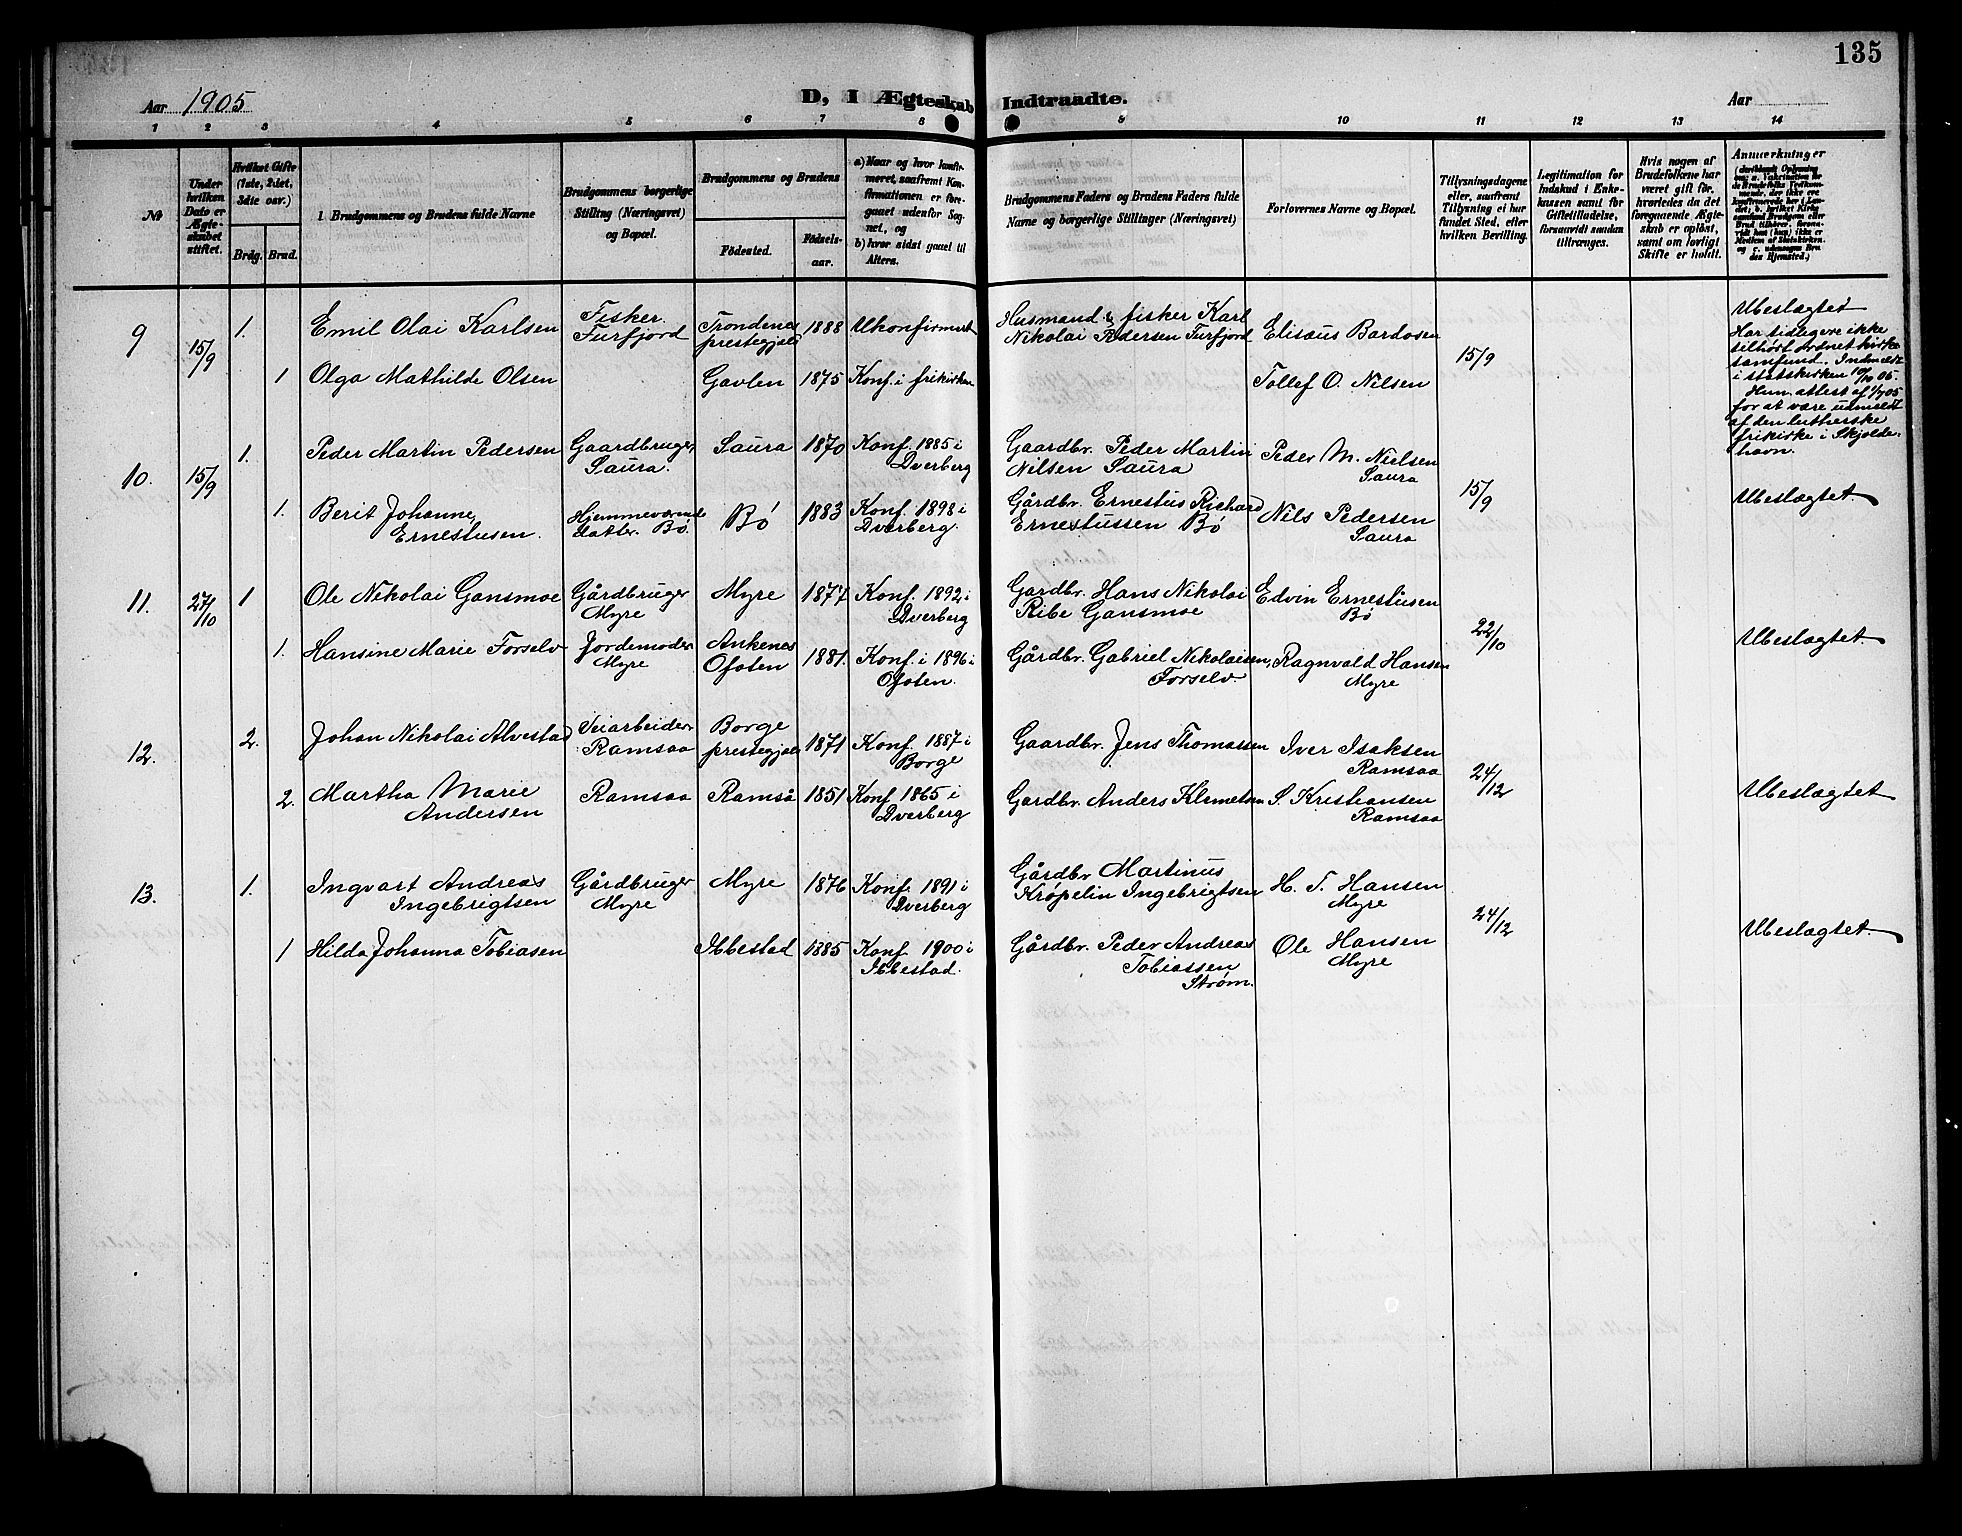 135
Aar 1905
D, I Ægteskab Indtraadte.
Aar
1 2 3 4 5 6 7 8 9 10 11 12 13 14
№
Under hvilken Dato er Ægteskabet stiftet.
Hvilket Gifte (1ste, 2det, 3dte osv.)
Brdg. Brud.
1. Brudgommens og Brudens fulde Navne
Brudgommens borgerlige Stilling (Næringsvei) og Bopæl.
Brudgommens og Brudens
Födested.
Födsels-aar.
a) Naar og hvor konfirmeret, saafremt Konfirmationen er foregaaet udenfor Sognet, og
b) hvor sidst gaaet til Alters.
Brudgommens Faders og Brudens Faders fulde Navne og borgerlige Stillinger (Næringsvei)
Forlovernes Navne og Bopæl.
Tillysningsdagene eller, saafremt Tillysning ei har fundet Sted, efter hvilken Bevilling.
Legitimation for Indskud i Enkekassen samt for Giftetilladelse, forsaavidt saadan tiltrænges.
Hvis nogen af Brudefolkene har været gift før, hvorledes da det foregaaende Ægteskab er opløst, samt om lovligt Skifte er holdt.
Anmærkninger
9 15/9 1. Emil Olai Karlsen
Fisker.
Furfjord
Trondenes
prestegjæld
1888 Ukonfirmert
Husmand & fisker Karl
Nikolai Pedersen Furfjord
Elisæus Bardosen
15/9
Ubeslægtet
Har tidligere ikke
tilhørt ordnet kirke
samfund. Indmeldt
i statskirken 10/10 05.
Hun attest af 1/7 05
for at være udmeldt
af den lutherske
frikirke i Skjolde-
havn.
1 Olga Mathilde Olsen
Gavlen 1875 Konf. i frikirken
Tollef O. Nilsen
10. 15/9 1. Peder Martin Pedersen
Gaardbruger
Saura.
Saura 1870 Konf. 1885 i
Dverberg
Gaardbr. Peder Martin
Nilsen Saura
Peder M. Nielsen
Saura
15/9
1. Berit Johanne
Ernestusen.
Hjemmeværende
datter. Bø.
Bø 1883 Konf. 1898 i
Dverberg.
Gårdbr. Ernestus Richard
Ernestussen Bø
Nils Pedersen
Saura
Ubeslægtet.
11. 27/10 1 Ole Nikolai Gansmoe
Gårdbruger
Myre
Myre 1877 Konf. 1892 i
Dverberg
Gardbr. Hans Nikolai
Ribe Gansmoe
Edvin Ernestusen
Bø
22/10
1. Hansine Marie Forselv
Jordemoder
Myre
Ankenes
Ofoten
1881. Konf. i 1896 i
Ofoten.
Gårdbr. Gabriel Nikolaisen,
Forselv.
Ragnvald Hansen
Myre
Ubeslægtet.
12. 2. Johan Nikolai Alvestad
Veiarbeider
Ramsaa
Borge
prestegjæld
1871 Konf. 1887 i
Borge
Gaardbr. Jens Thomassen
Iver Isaksen
Ramsaa
24/12
2. Martha Marie
Andersen
Ramsaa
Ramså 1851 Konf. 1865 i
Dverberg
Gardbr. Anders Klemetsen
S. Kristiansen
Ramsaa
Ubeslægtet
13. 1. Ingvart Andreas
Ingebrigtsen
Gårdbruger
Myre
Myre 1876 Konf. 1891 i
Dverberg
Gårdbr Martinus
Krøpelin Ingebrigtsen
H. T. Hansen
Myre
24/12
1 Hilda Johanna Tobiasen
Ibbestad 1885 Konf. 1900 i
Ibbestad.
Gårdbr. Peder Andreas
Tobiassen
Strøm.
Ole Hansen
Myre
Ubeslægtet.